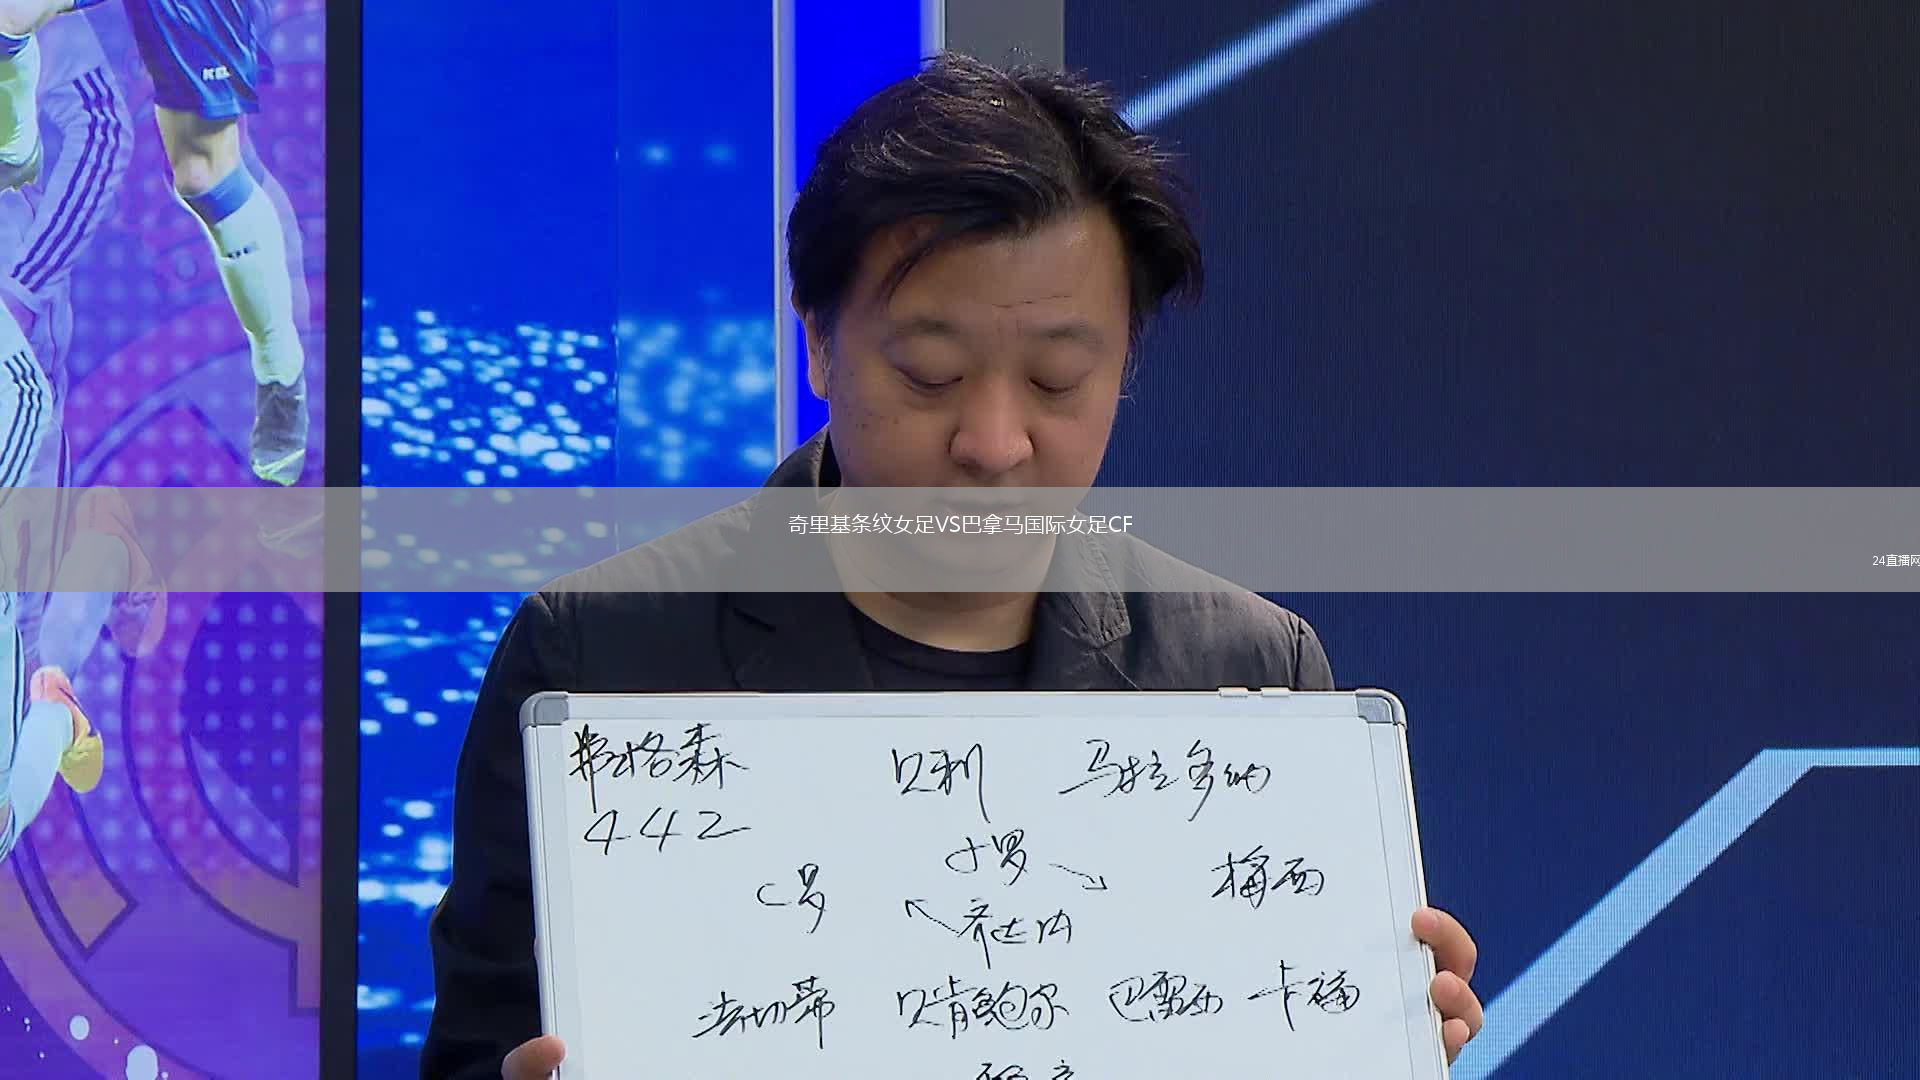 奇里基条纹女足VS巴拿马国际女足CF
24直播网
弗格森 贝利 马拉多纳
442
小罗
C罗 梅西
齐达内
法切蒂 贝肯鲍尔 巴雷西 卡福